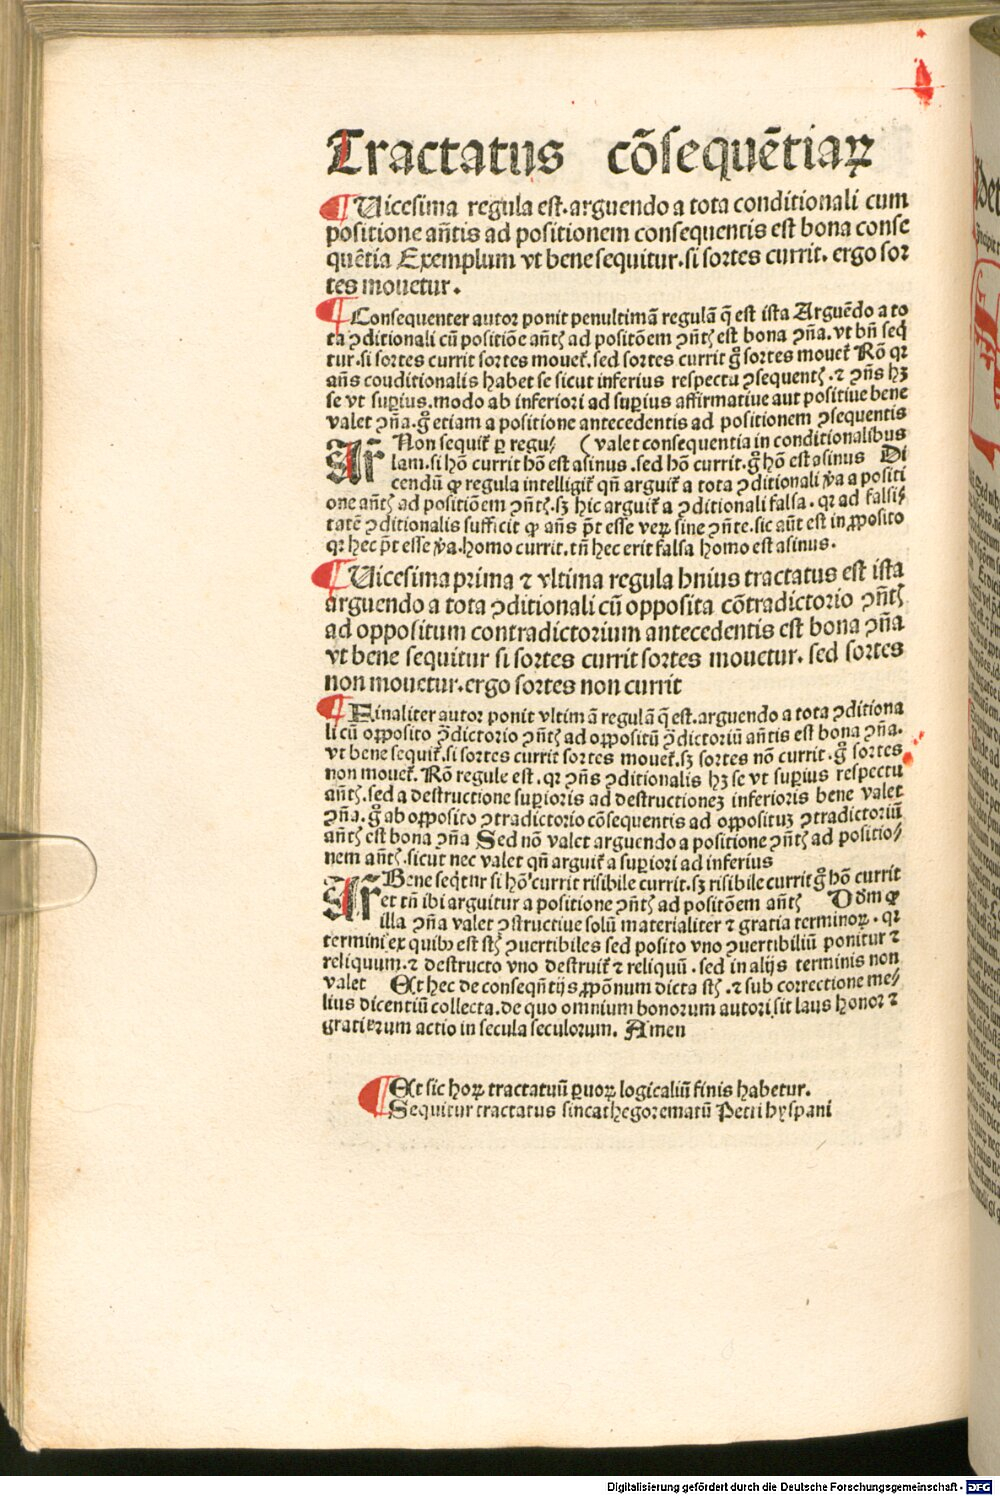 Tractatus cōsequētiaꝝ
¶ Uicesima regula est. arguendo a tota conditionali cum
positione añtis ad positionem consequentis est bona conse
quētia Exemplum vt bene sequitur. si sortes currit. ergo sor
tes mouetur.
¶ Consequenter autor ponit penultimā regulā q̄ est ista Arguēdo a to
ta ꝯditionali cū positiōe añtꝭ ad positōem ꝯñtꝭ est bona ꝯña. vt bñ seq̄
tur. si sortes currit sortes mouet̄. sed sortes currit gͦ sortes mouet̄ Rō qꝛ
añs conditionalis habet se sicut inferius respectu ꝯsequentꝭ. ⁊ ꝯñs hꝫ
se vt suꝑius. modo ab inferiori ad suꝑius affirmatiue aut positiue bene
valet ꝯña. gͦ etiam a positione antecedentis ad positionem ꝯsequentis
Ar̄ Non sequit̄ ꝑ regu⸗ ( valet consequentia in conditionalibus
lam. si hō currit hō est asinus. sed hō currit. gͦ hō est asinus Di
cendū ꝙ regula intelligit̄ qñ arguit̄ a tota ꝯditionali v̄a a positi
one añtꝭ ad positiōem ꝯñtꝭ. sꝫ hic arguit̄ a ꝯditionali falsa. qꝛ ad falsi⸗
tatē ꝯditionalis sufficit ꝙ añs p̄t esse veꝝ sine ꝯñte. sic aūt est in ꝓposito
qꝛ hec p̄t esse v̄a. homo currit. tñ hec erit falsa homo est asinus.
¶ Uicesima prima ⁊ vltima regula hnius tractatus est ista
arguendo a tota ꝯditionali cū opposita cōtradictorio ꝯñtꝭ
ad oppositum contradictorium antecedentis est bona ꝯña
vt bene sequitur si sortes currit sortes mouetur. sed sortes
non mouetur. ergo sortes non currit
¶ Finaliter autor ponit vltimā regulā q̄ est. arguendo a tota ꝯditiona
li cū oꝓposito ꝯ̄dictorio ꝯñtꝭ ad oꝓpositū ꝯ̄dictoriū añtis est bona ꝯña.
vt bene sequit̄. si sortes currit sortes mouet̄. sꝫ sortes nō currit. gͦ sortes
non mouet̄. Rō regule est. qꝛ ꝯñs ꝯditionalis hꝫ se vt suꝑius respectu
añtꝭ. sed a destructione suꝑioris ad destructioneꝫ inferioris bene valet
ꝯña. gͦ ab oꝓposito ꝯtradictorio cōsequentis ad oꝓposituꝫ ꝯtradictoriū
añtꝭ est bona ꝯña Sed nō valet arguendo a positione ꝯñtꝭ ad positio⸗
nem añtꝭ. sicut nec valet qñ arguit̄ a suꝑiori ad inferius
Ar̄ Bene seqt̄ur si hō currit risibile currit. sꝫ risibile currit gͦ hō currit
et tñ ibi arguitur a positione ꝯñtꝭ ad positōem añtꝭ Dōm ꝙ
illa ꝯña valet ꝯstructiue solū materialiter ⁊ gratia terminoꝝ. qꝛ
termini ex quibꝰ est stꝭ ꝯuertibiles sed posito vno ꝯuertibiliū ponitur ⁊
reliquum. ⁊ destructo vno destruit̄ ⁊ reliquū. sed in alijs terminis non
valet Et hec de conseqñtijs ꝓpōnum dicta stꝭ. ⁊ sub correctione me⸗
lius dicentiū collecta. de quo omnium bonorum autori sit laus honor ⁊
gratiarum actio in secula seculorum. Amen
¶ Et sic hoꝝ tractatuū ꝑuoꝝ logicaliū finis habetur.
Sequitur tractatus sincathegorematū Petri hyspani
Digitalisierung gefördert durch die Deutsche Forschungsgemeinschaft - DFG